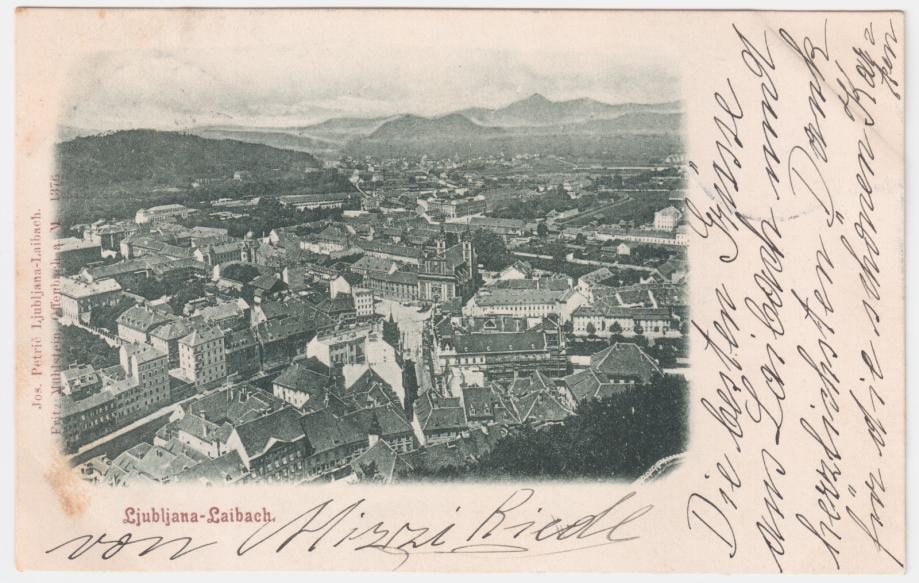 Jos. Petrič Ljubljana-Laibach.
Fritz Offenbach a. M 1375
Ljubljana-Laibach.
von Mizzi Riedl
Die besten Grüsse
aus Laibach und
herzlichsten Dank
für die schönen Kar-
ten